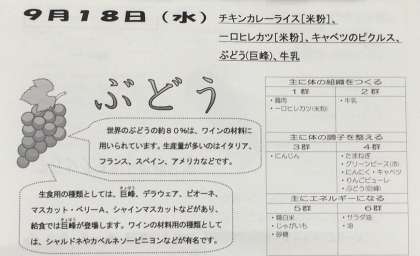 ９月１８日（水）
チキンカレーライス[米粉]、
一口ヒレカツ[米粉]、キャベツのピクルス、
ぶどう(巨峰)、牛乳
ぶどう
世界のぶどうの約８０％は、ワインの材料に
用いられています。生産量が多いのはイタリア、
フランス、スペイン、アメリカなどです。
生食用の種類としては、巨峰、デラウェア、ピオーネ、
マスカット・ベリーA、シャインマスカットなどがあり、
給食では巨峰が登場します。ワインの材料用の種類として
は、シャルドネやカベルネソービニヨンなどが有名です。
主に体の組織をつくる
１群 ２群
・鶏肉 ・牛乳
・一口ヒレカツ(米粉)
主に体の調子を整える
３群 ４群
・にんじん ・たまねぎ
・グリーンピース(冷)
・にんにく ・キャベツ
・りんごピューレ
・ぶどう(巨峰)
主にエネルギーになる
５群 ６群
・精白米 ・サラダ油
・じゃがいも ・油
・砂糖